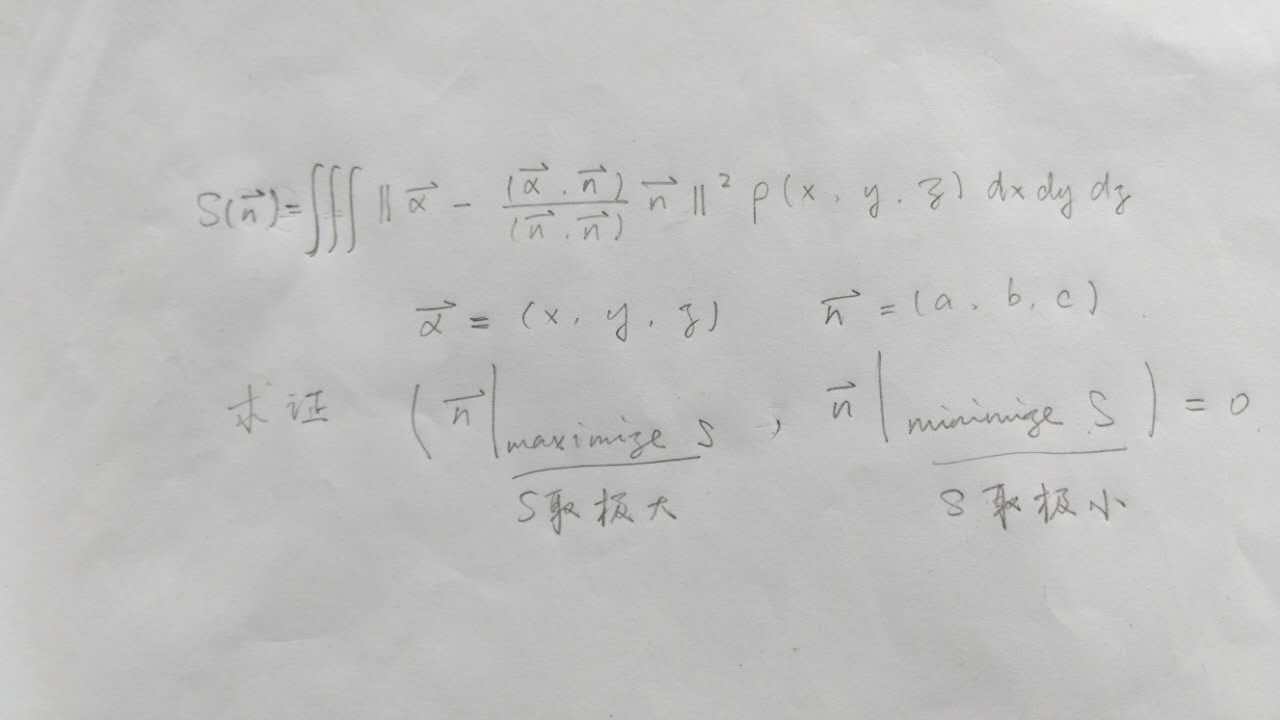 S(n⃗)=∭ ‖ α⃗ - (α⃗.n⃗)/(n⃗.n⃗) n⃗ ‖² ρ(x, y, z) dx dy dz
α⃗ = (x, y, z)   n⃗ = (a, b, c)
求证 ( n⃗ |maximize S , n⃗ |minimize S ) = 0
S取极大   S取极小